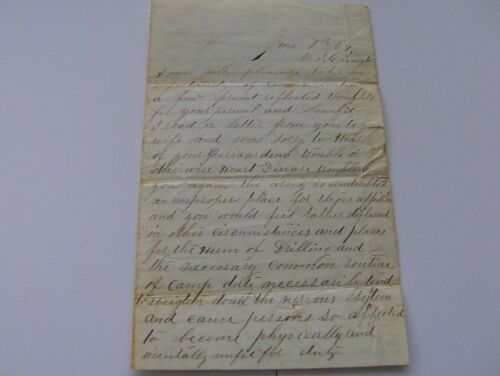 June 7th 64
I now with pleasure take an
opportunity of
a few present reflected thoughts
for your perusal and
I read a letter from you to
wife and was sorry to Hear
of your Pericardina trouble or
otherwise Heart Disease troubling
you again the army is
an improper place for those
and you would feel rather different
in other circumstances and places
for the Hum of Drilling and
the necessary common routine
of camp duty necessarily tend
to weigth down the nervous System
and cause persons so affected
to become physically and
mentally unfit for duty